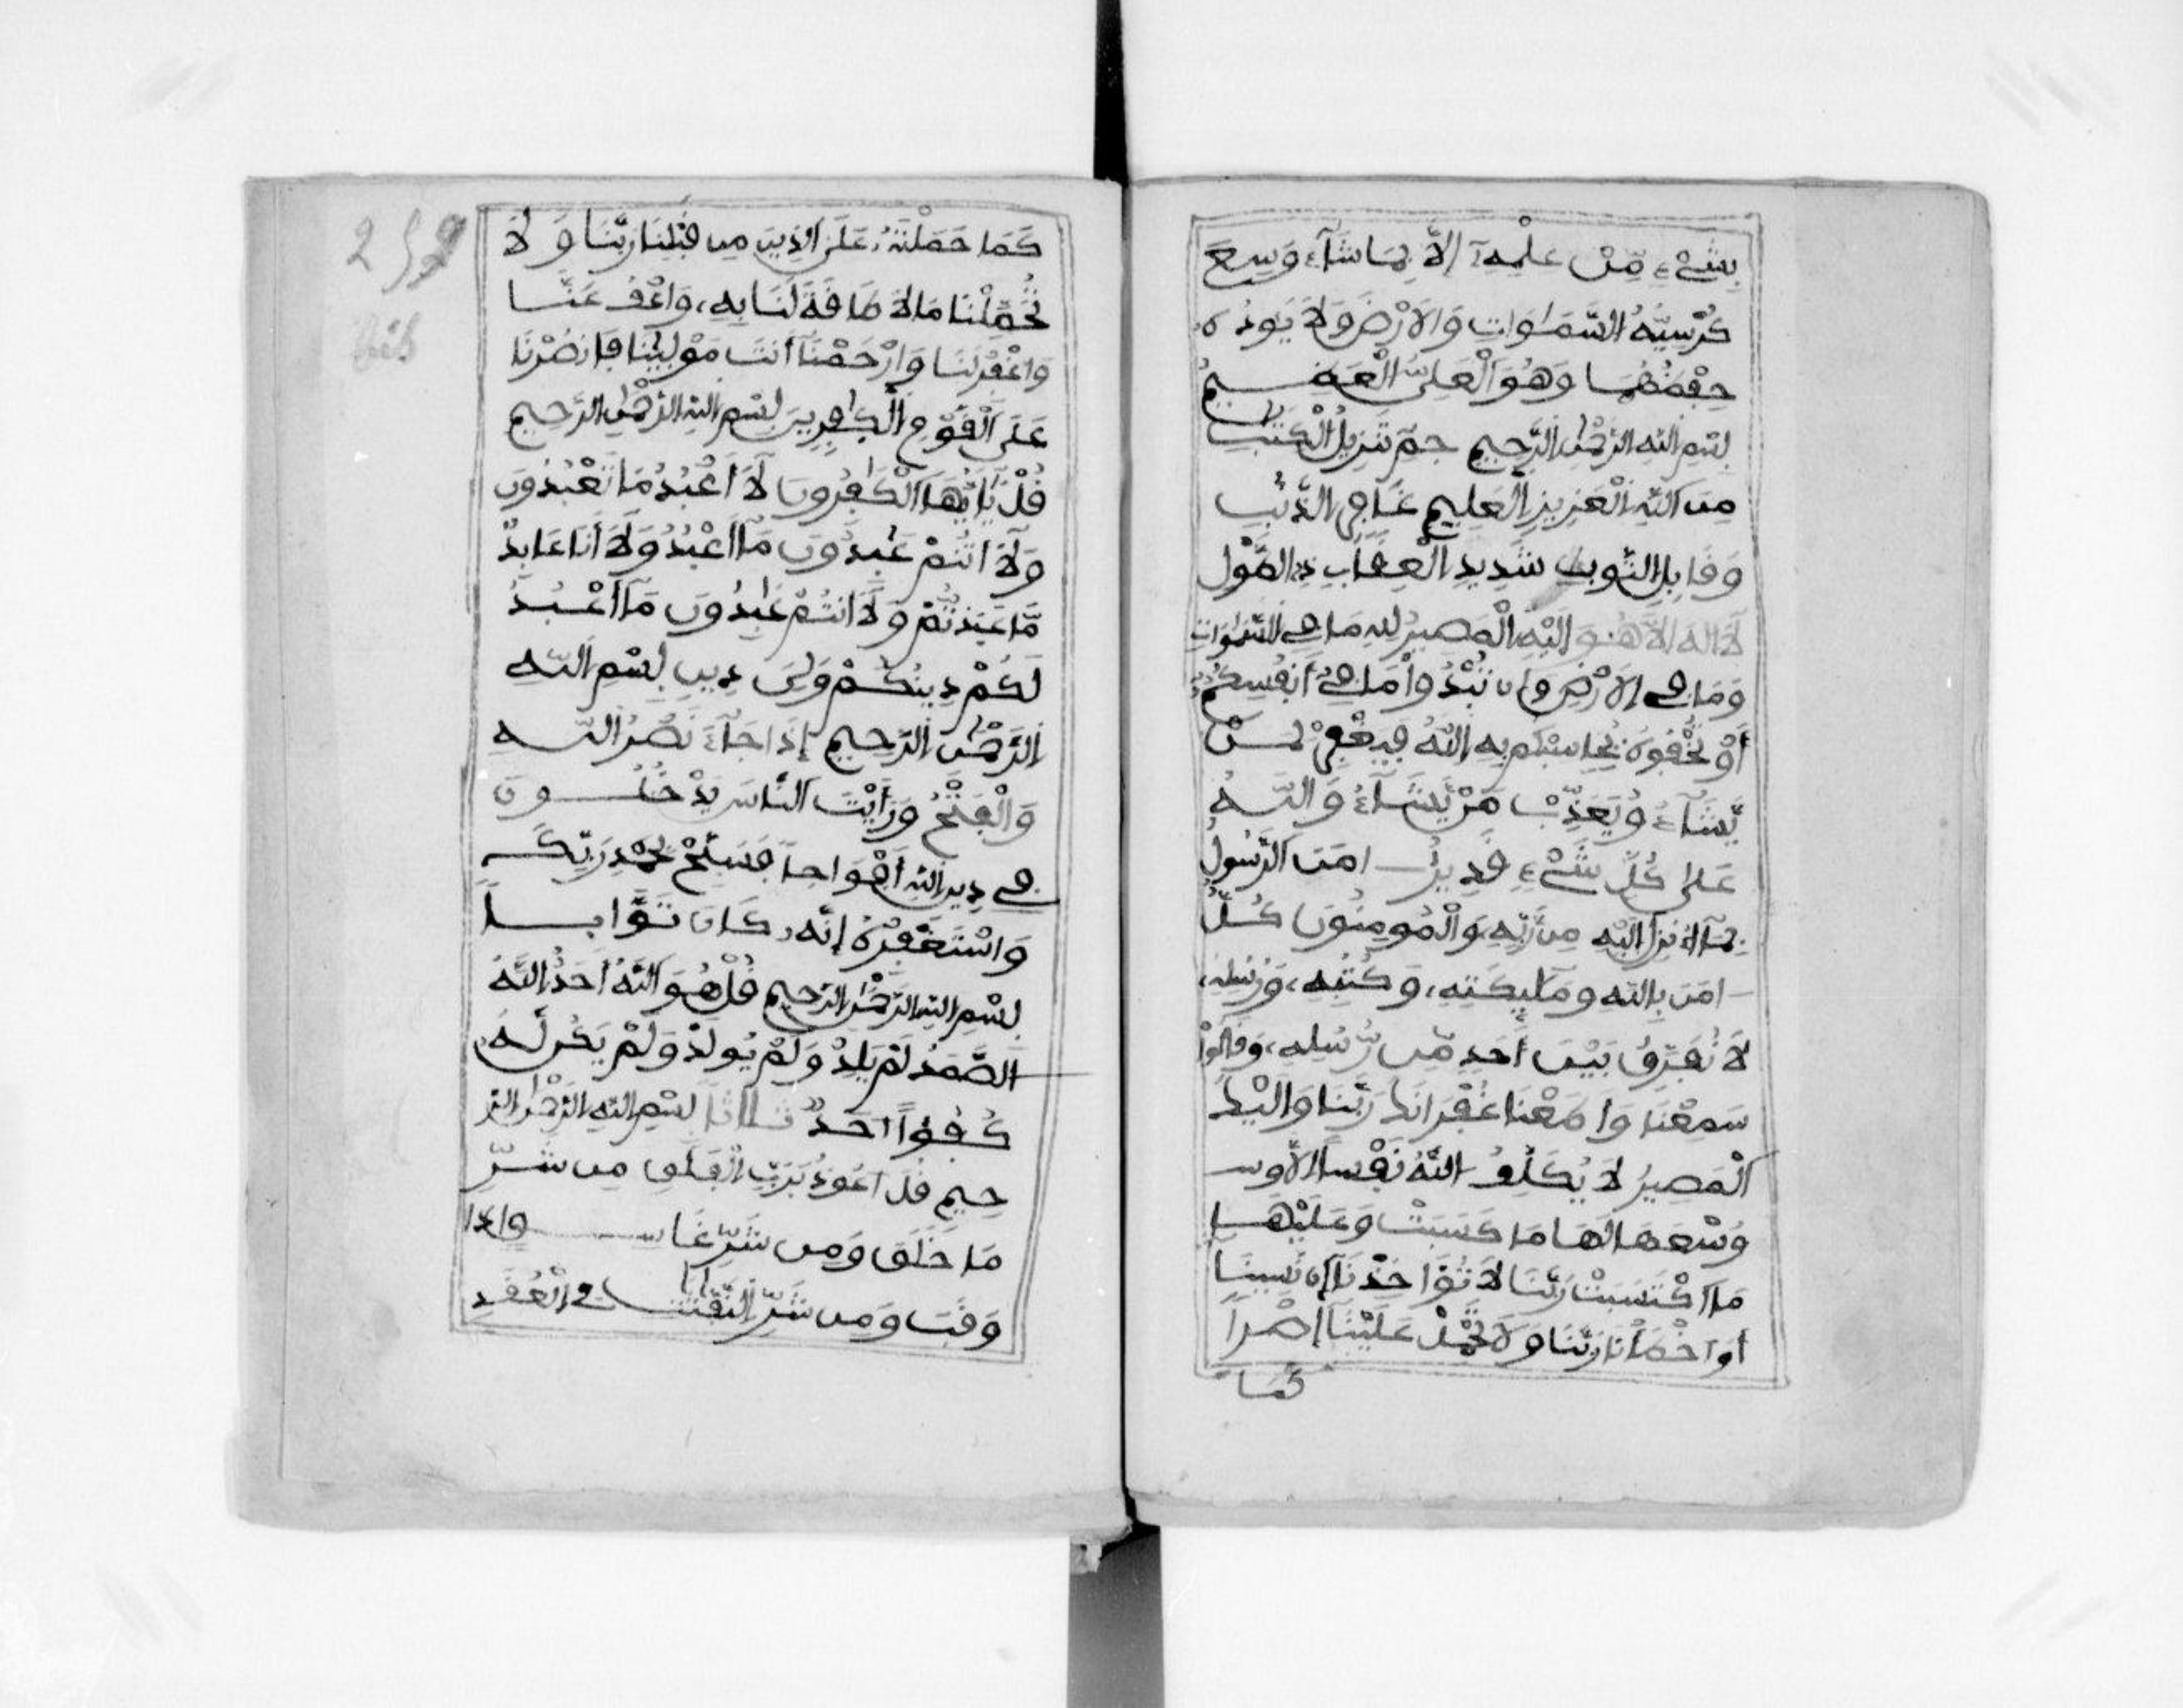 بِشَيْءٍ مِّنْ عِلْمِهِ إِلَّا بِمَا شَاءَ وَسِعَ
كُرْسِيُّهُ السَّمَٰوَاتِ وَالْأَرْضَ وَلَا يَـُٔودُهُ
حِفْظُهُمَا وَهُوَ الْعَلِيُّ الْعَظِيمُ
بِسْمِ اللَّهِ الرَّحْمَٰنِ الرَّحِيمِ حم تَنزِيلُ الْكِتَٰبِ
مِنَ اللَّهِ الْعَزِيزِ الْعَلِيمِ غَافِرِ الذَّنۢبِ
وَقَابِلِ التَّوْبِ شَدِيدِ الْعِقَابِ ذِي الطَّوْلِ
لَا إِلَٰهَ إِلَّا هُوَ إِلَيْهِ الْمَصِيرُ لِلَّهِ مَا فِي السَّمَٰوَاتِ
وَمَا فِي الْأَرْضِ وَإِن تُبْدُوا مَا فِي أَنفُسِكُمْ
أَوْ تُخْفُوهُ يُحَاسِبْكُم بِهِ اللَّهُ فَيَغْفِرْ لِمَنْ
يَّشَاءُ وَيُعَذِّبْ مَنْ يَّشَاءُ وَاللَّهُ
عَلَىٰ كُلِّ شَيْءٍ قَدِيرٌ ءامَنَ الرَّسُولُ
بِمَا أُنزِلَ إِلَيْهِ مِن رَّبِّهِ وَالْمُومِنُونَ كُلٌّ
ءامَنَ بِاللَّهِ وَمَلَٰٓئِكَتِهِ وَكُتُبِهِ وَرُسُلِهِ
لَا نُفَرِّقُ بَيْنَ أَحَدٍ مِّن رُّسُلِهِ وَقَالُوا
سَمِعْنَا وَأَطَعْنَا غُفْرَانَكَ رَبَّنَا وَإِلَيْكَ
الْمَصِيرُ لَا يُكَلِّفُ اللَّهُ نَفْسًا إِلَّا وس
وُسْعَهَا لَهَا مَا كَسَبَتْ وَعَلَيْهَا
مَا اكْتَسَبَتْ رَبَّنَا لَا تُؤَاخِذْنَا إِن نَّسِينَا
أَوْ أَخْطَأْنَا رَبَّنَا وَلَا تَحْمِلْ عَلَيْنَا إِصْرًا
كَمَا
2
كَمَا حَمَلْتَهُ عَلَى الَّذِينَ مِن قَبْلِنَا رَبَّنَا وَلَا
تُحَمِّلْنَا مَا لَا طَاقَةَ لَنَا بِهِ وَاعْفُ عَنَّا
وَاغْفِرْ لَنَا وَارْحَمْنَا أَنتَ مَوْلَىٰنَا فَانصُرْنَا
عَلَى الْقَوْمِ الْكَٰفِرِينَ بِسْمِ اللَّهِ الرَّحْمَٰنِ الرَّحِيمِ
قُلْ يَا أَيُّهَا الْكَٰفِرُونَ لَا أَعْبُدُ مَا تَعْبُدُونَ
وَلَا أَنتُمْ عَٰبِدُونَ مَا أَعْبُدُ وَلَا أَنَا عَابِدٌ
مَّا عَبَدتُّمْ وَلَا أَنتُمْ عَٰبِدُونَ مَا أَعْبُدُ
لَكُمْ دِينُكُمْ وَلِيَ دِينِ بِسْمِ اللَّهِ
الرَّحْمَٰنِ الرَّحِيمِ إِذَا جَاءَ نَصْرُ اللَّهِ
وَالْفَتْحُ وَرَأَيْتَ النَّاسَ يَدْخُلُونَ
فِي دِينِ اللَّهِ أَفْوَاجًا فَسَبِّحْ بِحَمْدِ رَبِّكَ
وَاسْتَغْفِرْهُ إِنَّهُ كَانَ تَوَّابًا
بِسْمِ اللَّهِ الرَّحْمَٰنِ الرَّحِيمِ قُلْ هُوَ اللَّهُ أَحَدٌ اللَّهُ
الصَّمَدُ لَمْ يَلِدْ وَلَمْ يُولَدْ وَلَمْ يَكُن لَّهُ
كُفُؤًا أَحَدٌ ثلاثًا بِسْمِ اللَّهِ الرَّحْمَٰنِ الر
حِيمِ قُلْ أَعُوذُ بِرَبِّ الْفَلَقِ مِن شَرِّ
مَا خَلَقَ وَمِن شَرِّ غَاسِقٍ إِذَا
وَقَبَ وَمِن شَرِّ النَّفَّٰثَٰتِ فِي الْعُقَدِ